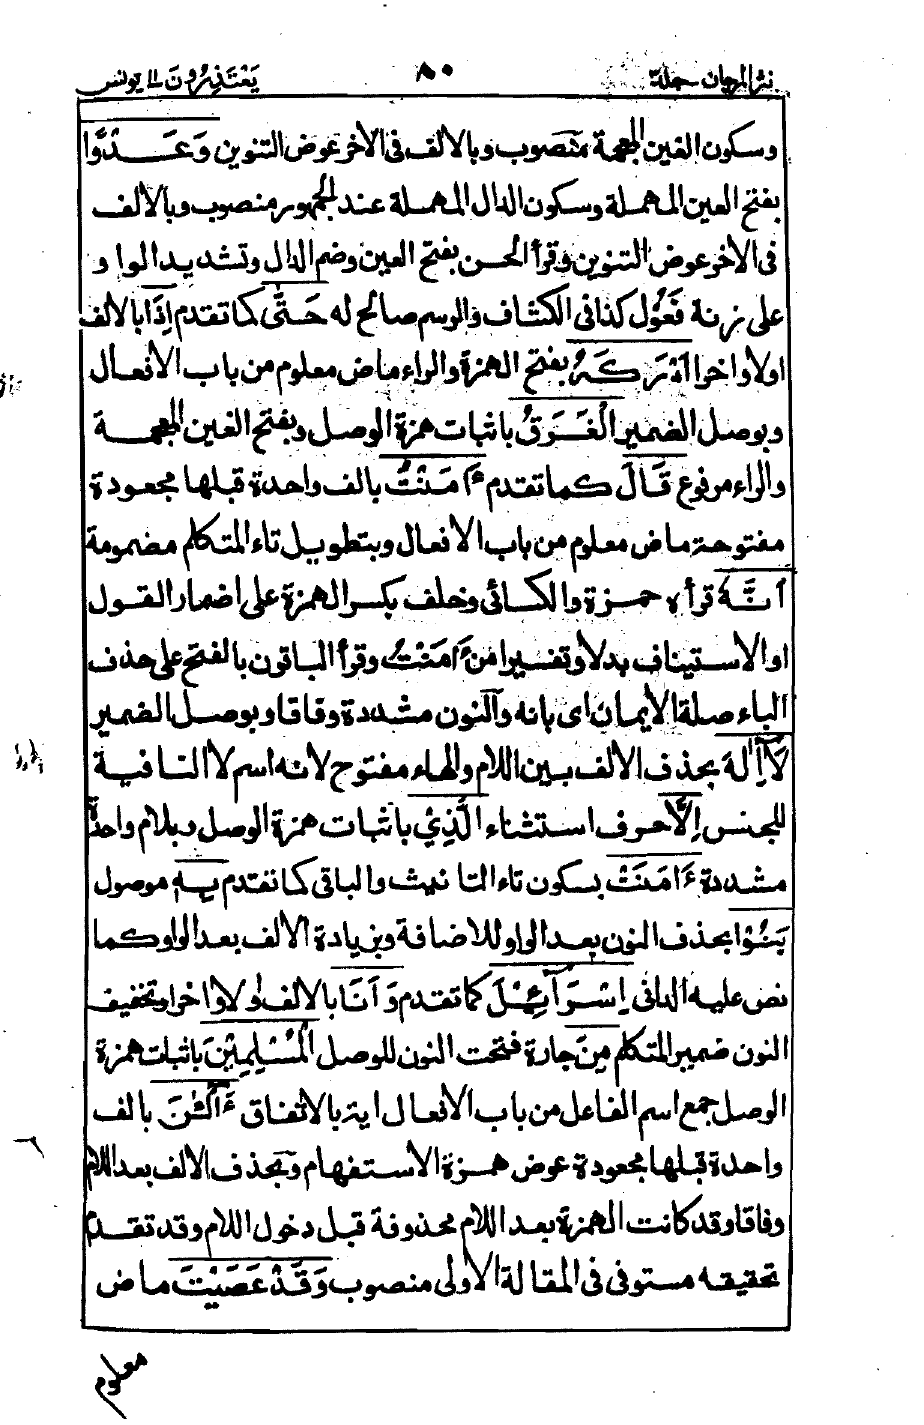 نثر المرجان جلد٢ ٨٠ يَعْتَذِرُونَ ١١ يونس
وسكون الغين المعجمة منصوب وبالالف فى الاٰخر عوض التنوين وَعَدْوًا
بفتح العين المهملة وسكون الدال المهملة عند الجمهور منصوب وبالالف
فى الاٰخر عوض التنوين وقرأ الحسن بفتح العين وضم الدال وتشديد الواو
على زنة فَعُوْل كذا فى الكشاف والرسم صالح له حَتّٰى كما تقدم اِذَا بالالف
اولا واخرا اَدْرَكَهُ بفتح الهمزة والراء ماض معلوم من باب الافعال
وبوصل الضمير الْغَرَقُ باثبات همزة الوصل وبفتح الغين المعجمة
والراء مرفوع قَالَ كما تقدم ءَامَنْتُ بالف واحدة قبلها مجعودة
مفتوحة ماض معلوم من باب الافعال وبتطويل تاء المتكلم مضمومة
اَنَّهُ قرأه حمزة والكسائى وخلف بكسر الهمزة على اضمار القول
او الاستيناف بدلا وتفسيرا من ءَامَنْتُ وقرأ الباقون بالفتح على حذف
الباء صلة الايمان اى بانه والنون مشددة وفاقا وبوصل الضمير
لَآ اِلٰهَ بحذف الالف بين اللام والهاء مفتوح لانه اسم لا النافية
للجنس اِلَّا حرف استثناء الَّذِيْ باثبات همزة الوصل وبلام واحدة
مشددة ءَامَنَتْ بسكون تاء التانيث والباقى كما تقدم بِهٖ موصول
بَنُوْا بحذف النون بعد الواو للاضافة وبزيادة الالف بعد الواو كما
نص عليه الدانى اِسْرَآءِيْلَ كما تقدم وَاَنَا بالالف اولا واخرا وتخفيف
النون ضمير المتكلم مِنَ جارة فتحت النون للوصل الْمُسْلِمِيْنَ باثبات همزة
الوصل جمع اسم الفاعل من باب الافعال اية بالاتفاق ءَآلْـٰٔنَ بالف
واحدة قبلها مجعودة عوض همزة الاستفهام وبحذف الالف بعد اللام
وفاقا وقد كانت الهمزة بعد اللام محذوفة قبل دخول اللام وقد تقدم
تحقيقه مستوفى فى المقالة الاولى منصوب وَقَدْ عَصَيْتَ ماض
معلوم